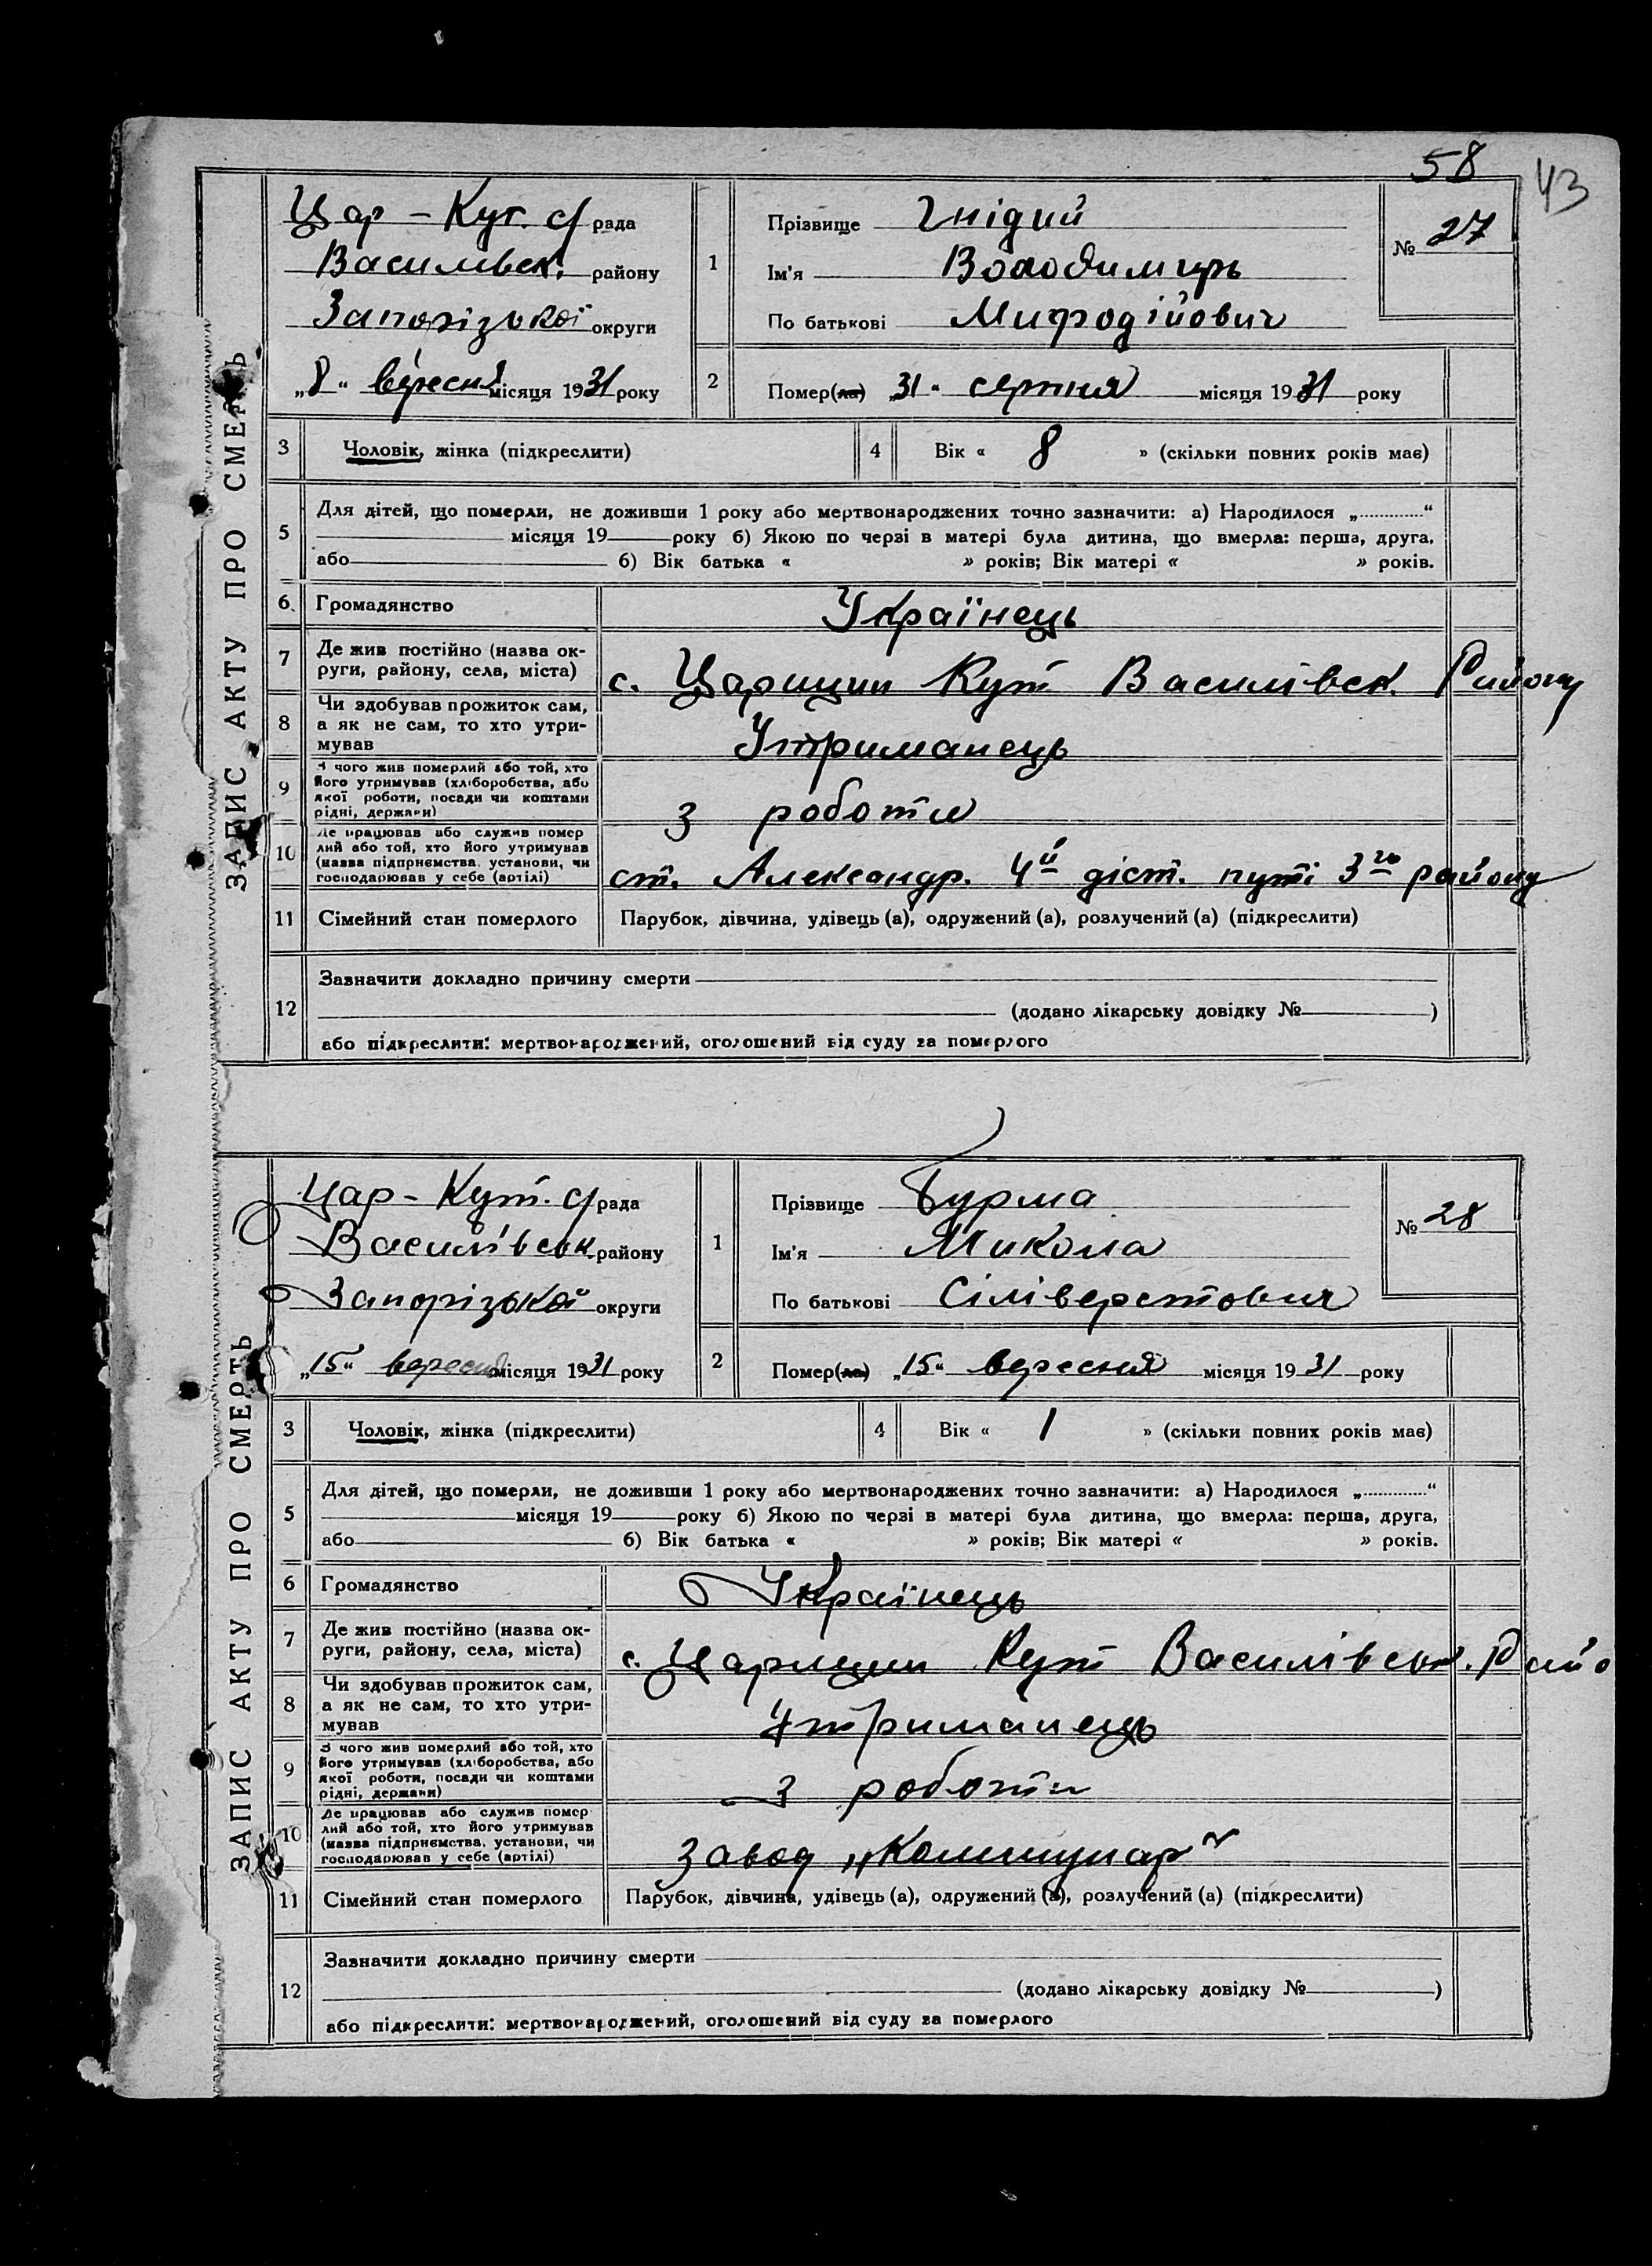 58
43
ЗАПИС АКТУ ПРО СМЕРТЬ
Цар-Кут. с/рада
Василівськ. району
Запорізької округи
„8“ вересня місяця 1931 року
1
Прізвище Гнідий
Ім'я Володимирь
По батькові Мифодійович
№ 27
2
Помер(ла) „31“ серпня місяця 1931 року
3 Чоловік, жінка (підкреслити)
4 Вік « 8 » (скільки повних років має)
5 Для дітей, що померли, не доживши 1 року або мертвонароджених точно зазначити: а) Народилося „............“
місяця 19 року б) Якою по черзі в матері була дитина, що вмерла: перша, друга,
або б) Вік батька « » років; Вік матері « » років.
6. Громадянство Українець
7 Де жив постійно (назва ок-
руги, району, села, міста) с. Царицин Кут Василівск. Району
8 Чи здобував прожиток сам,
а як не сам, то хто утри-
мував Утриманець
9 З чого жив померлий або той, хто
його утримував (хліборобства, або
якої роботи, посади чи коштами
рідні, держави) з роботи
10 Де працював або служив помер
лий або той, хто його утримував
(назва підприємства, установи, чи
господарював у себе (артілі) ст. Александр. 4й діст. путі 3го району
11 Сімейний стан померлого Парубок, дівчина, удівець (а), одружений (а), розлучений (а) (підкреслити)
12 Зазначити докладно причину смерти
(додано лікарську довідку № )
або підкреслити: мертвонароджений, оголошений від суду за померлого
ЗАПИС АКТУ ПРО СМЕРТЬ
Цар-Кут. с/рада
Василівськ. району
Запорізької округи
„15“ вересня місяця 1931 року
1
Прізвище Бурма
Ім'я Микола
По батькові Сіліверстович
№ 28
2
Помер(ла) „15“ вересня місяця 1931 року
3 Чоловік, жінка (підкреслити)
4 Вік « 1 » (скільки повних років має)
5 Для дітей, що померли, не доживши 1 року або мертвонароджених точно зазначити: а) Народилося „............“
місяця 19 року б) Якою по черзі в матері була дитина, що вмерла: перша, друга,
або б) Вік батька « » років; Вік матері « » років.
6 Громадянство Українець
7 Де жив постійно (назва ок-
руги, району, села, міста) с. Царицин Кут Василівськ. Райо
8 Чи здобував прожиток сам,
а як не сам, то хто утри-
мував Утриманець
9 З чого жив померлий або той, хто
його утримував (хліборобства, або
якої роботи, посади чи коштами
рідні, держави) з роботи
10 Де працював або служив помер
лий або той, хто його утримував
(назва підприємства, установи, чи
господарював у себе (артілі) завод „Коммунар“
11 Сімейний стан померлого Парубок, дівчина, удівець (а), одружений (а), розлучений (а) (підкреслити)
12 Зазначити докладно причину смерти
(додано лікарську довідку № )
або підкреслити: мертвонароджений, оголошений від суду за померлого